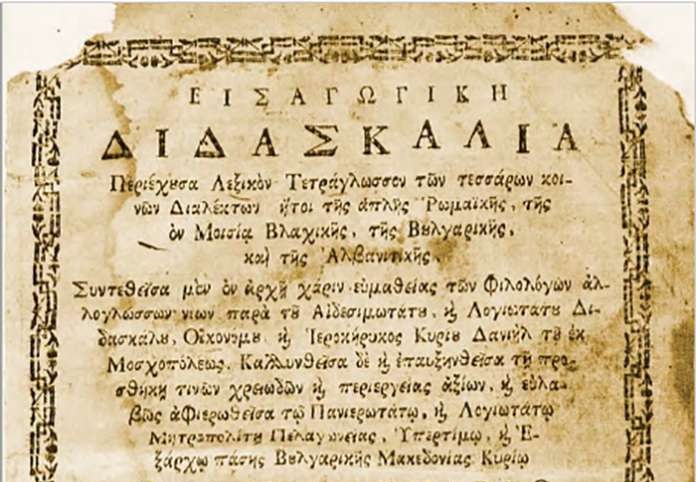 ΕΙΣΑΓΩΓΙΚΗ
ΔΙΔΑΣΚΑΛΙΑ
Περιέχȣσα Λεξικὸν Τετράγλωσσον τῶν τεσσάρων κοι-
νῶν Διαλέκτων ἤτοι τῆς ἁπλῆς Ῥωμαϊκῆς, τῆς
ἐν Μοισίᾳ Βλαχικῆς, τῆς Βȣλγαρικῆς,
καὶ τῆς Ἀλβανιτικῆς.
Συντεθεῖσα μὲν ἐν ἀρχῇ χάριν εὐμαθείας τῶν Φιλολόγων ἀλ-
λογλώσσων νέων παρὰ τȣ͂ Αἰδεσιμωτάτȣ, ϗ Λογιωτάτȣ Δι-
δασκάλȣ, Οἰκονόμȣ, ϗ Ἱεροκήρυκος Κυρίȣ Δανιὴλ τȣ͂ ἐκ
Μοσχοπόλεως. Καλλυνθεῖσα δὲ ϗ ἐπαυξηνθεῖσα τῇ προσ-
σθήκῃ τινῶν χρειωδῶν ϗ περιεργείας ἀξίων, ϗ εὐλα-
βῶς ἀφιερωθεῖσα τῷ Πανιερωτάτῳ, ϗ Λογιωτάτῳ
Μητροπολίτῃ Πελαγωνείας, Ὑπερτίμῳ, ϗ Ἐ-
ξάρχῳ πάσης Βȣλγαρικῆς Μακεδονίας Κυρίῳ